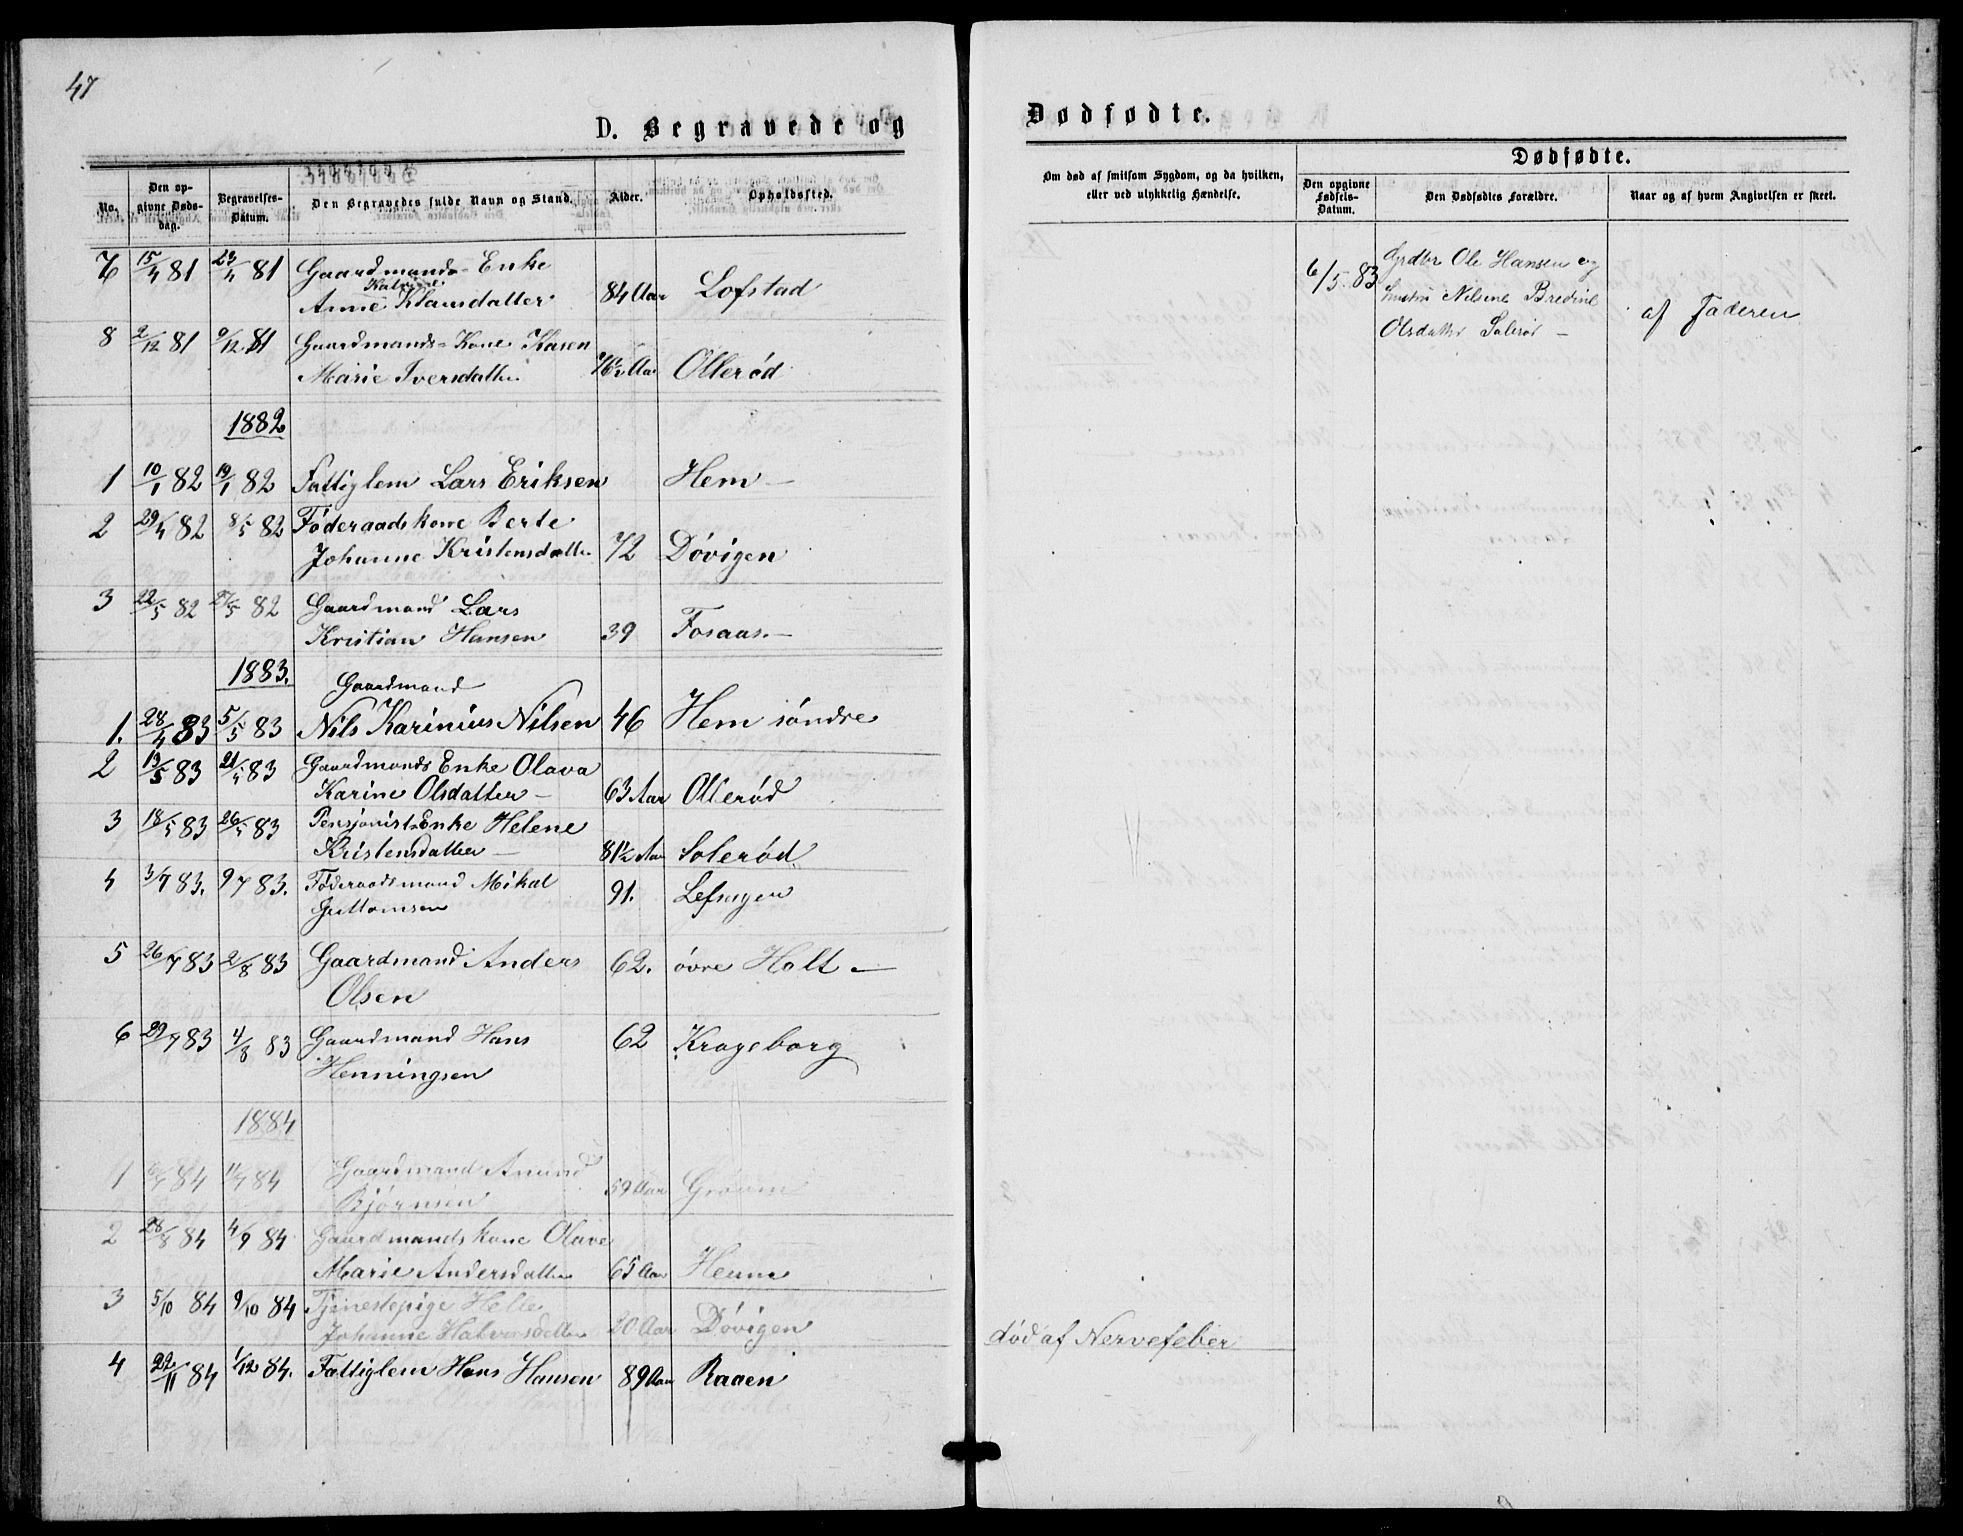 47
D. Begravede og
Dødfødte.
No.
Den opgivne Dødsdag.
Begravelses-Datum.
Den Begravedes fulde Navn og Stand.
Alder.
Opholdssted.
Om død af smitsom Sygdom, og da hvilken, eller ved ulykkelig Hændelse.
Dødfødte.
Den opgivne Fødsels-Datum.
Den Dødfødtes Forældre.
Naar og af hvem Angivelsen er skeet.
7 15/4 81 23/4 81 Gaardmands-Enke
Anne Katrine Klausdatter 84 Aar Lofstad
8 2/12 81 9/12 81 Gaardmands-Kone Karen
Marie Iversdatter 76½ Aar Ollerød
1882
1 10/1 82 19/1 82 Fattiglem Lars Eriksen Hem
2 29/4 82 8/5 82 Føderaadskone Berte
Johanne Kristensdatter 72 Døvigen
3 22/5 82 27/5 82 Gaardmand Lars
Kristian Hansen 39 Fosaas
1883.
Gaardmand
1. 28/4 83 5/5 83 Nils Karinius Nilsen 46 Hem søndre
2 13/5 83 21/5 83 Gaardmands Enke Olava
Karine Olsdatter 63 Aar Ollerød
3 18/5 83 26/5 83 Pensjonist-Enke Helene
Kristensdatter 81½ Aar Solerød
4 3/7 83. 9 7 83. Føderaadsmand Mikal
Guttormsen 91.
5 26/7 83 2/8 83 Gaardmand Anders
Olsen 62. øvre Holt
6 29/7 83 4/8 83 Gaardmand Hans
Henningsen 62 Krageborg
1884
1 84 84 Gaardmand Amund
Bjørnsen 59 Aar
2 28/8 84 4/9 84 Gaardmandskone Olave
Marie Andersdatter 65 Aar
3 5/10 84 9/10 84 Tjenestepige Helle
Johanne Halvorsdatter 20 Aar Døvigen
død af Nervefeber
4 22/11 84 1/12 84. Fattiglem Hans Hansen 89 Aar Raaen
6/5. 83 Grdbr Ole Hansen og
Hustru Nilsine Bredine
Olsdatter Solerød
af Faderen